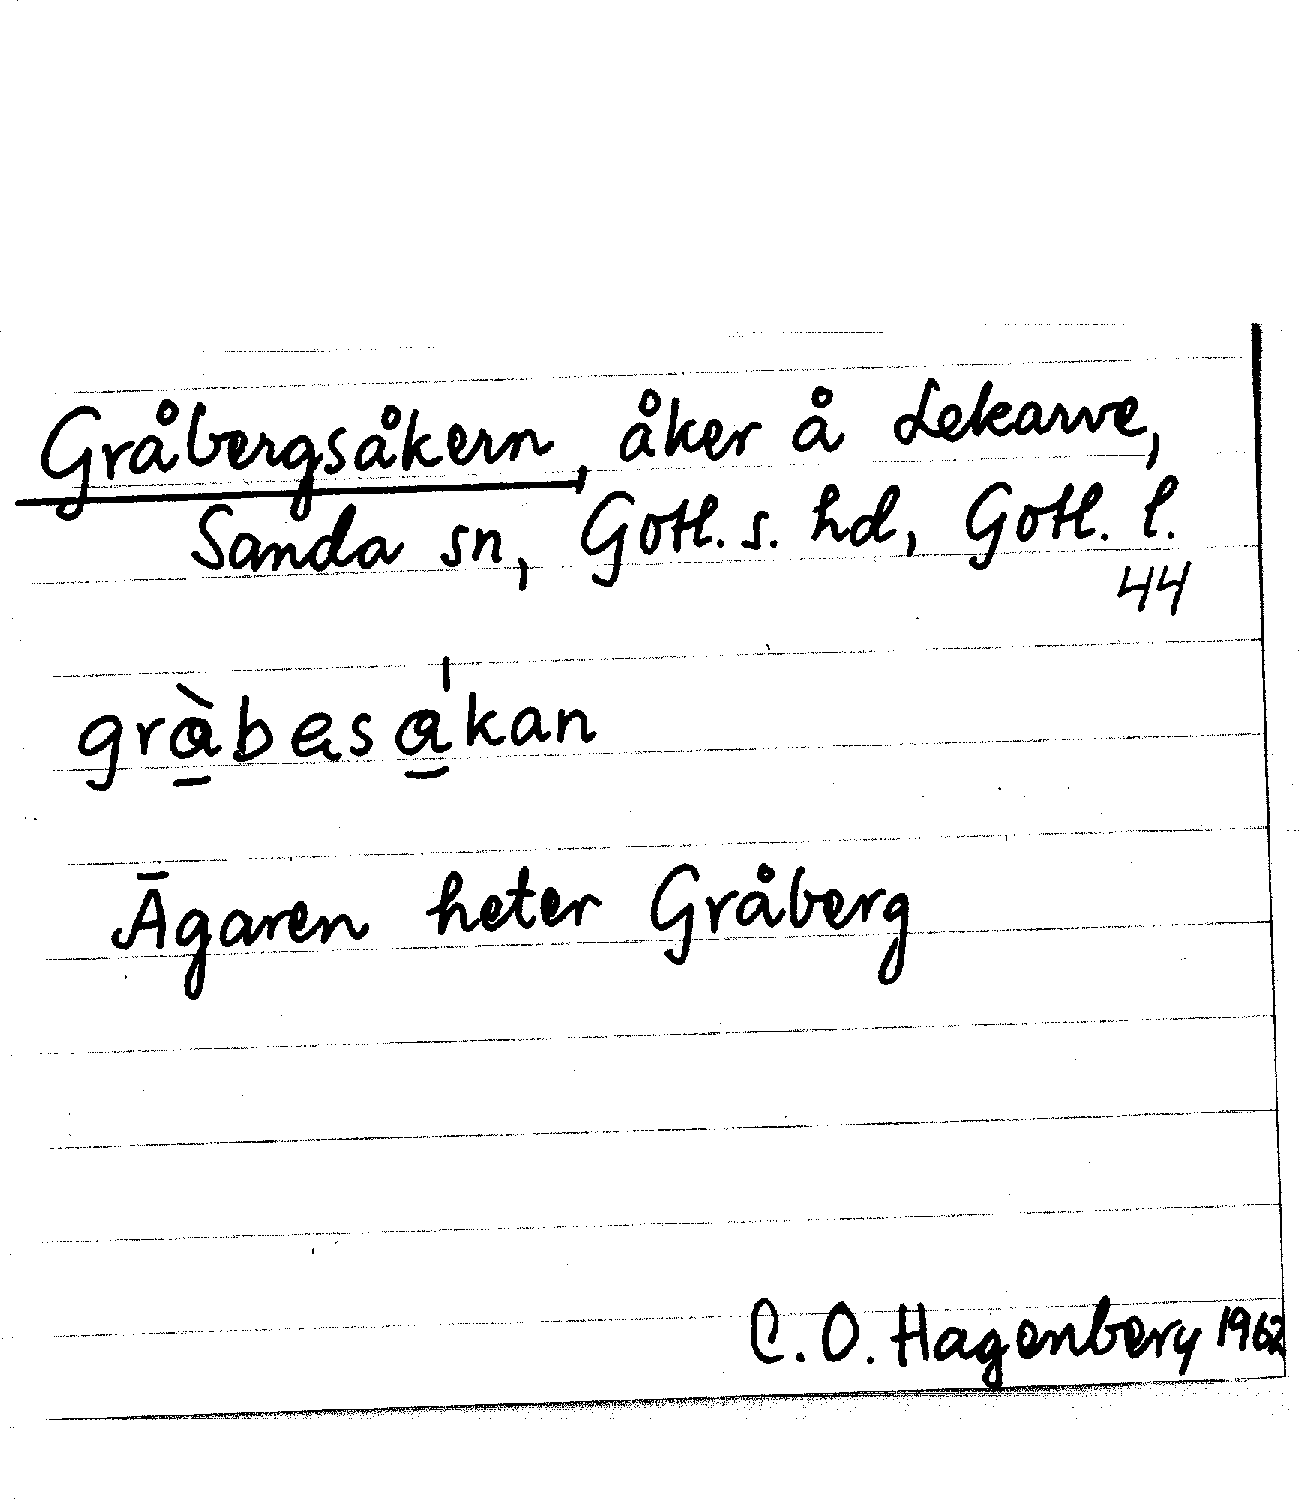 Gråbergsåkern, åker å Lekarve,
Sanda sn, Gotl. s. hd, Gotl. l.
44
grà̱bæsa̱'kan
Ägaren heter Gråberg
C. O. Hagenberg 1962